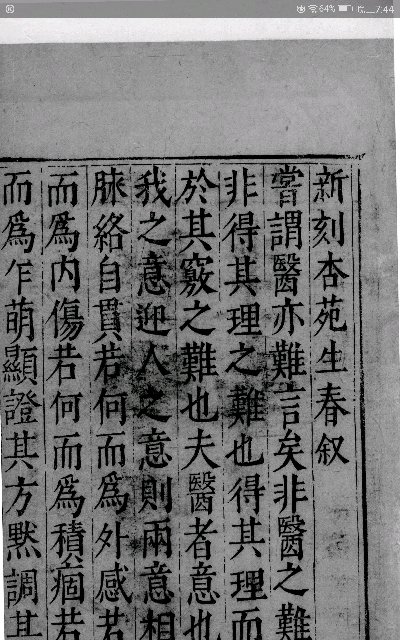 64% 7:44
新刻杏苑生春叙
嘗謂醫亦難言矣非醫之難
非得其理之難也得其理而
於其竅之難也夫醫者意也
我之意迎人之意則兩意相
脉絡自貫若何而為外感若
而爲内傷若何而爲積痼若
而爲乍萌顯證其方黙調其